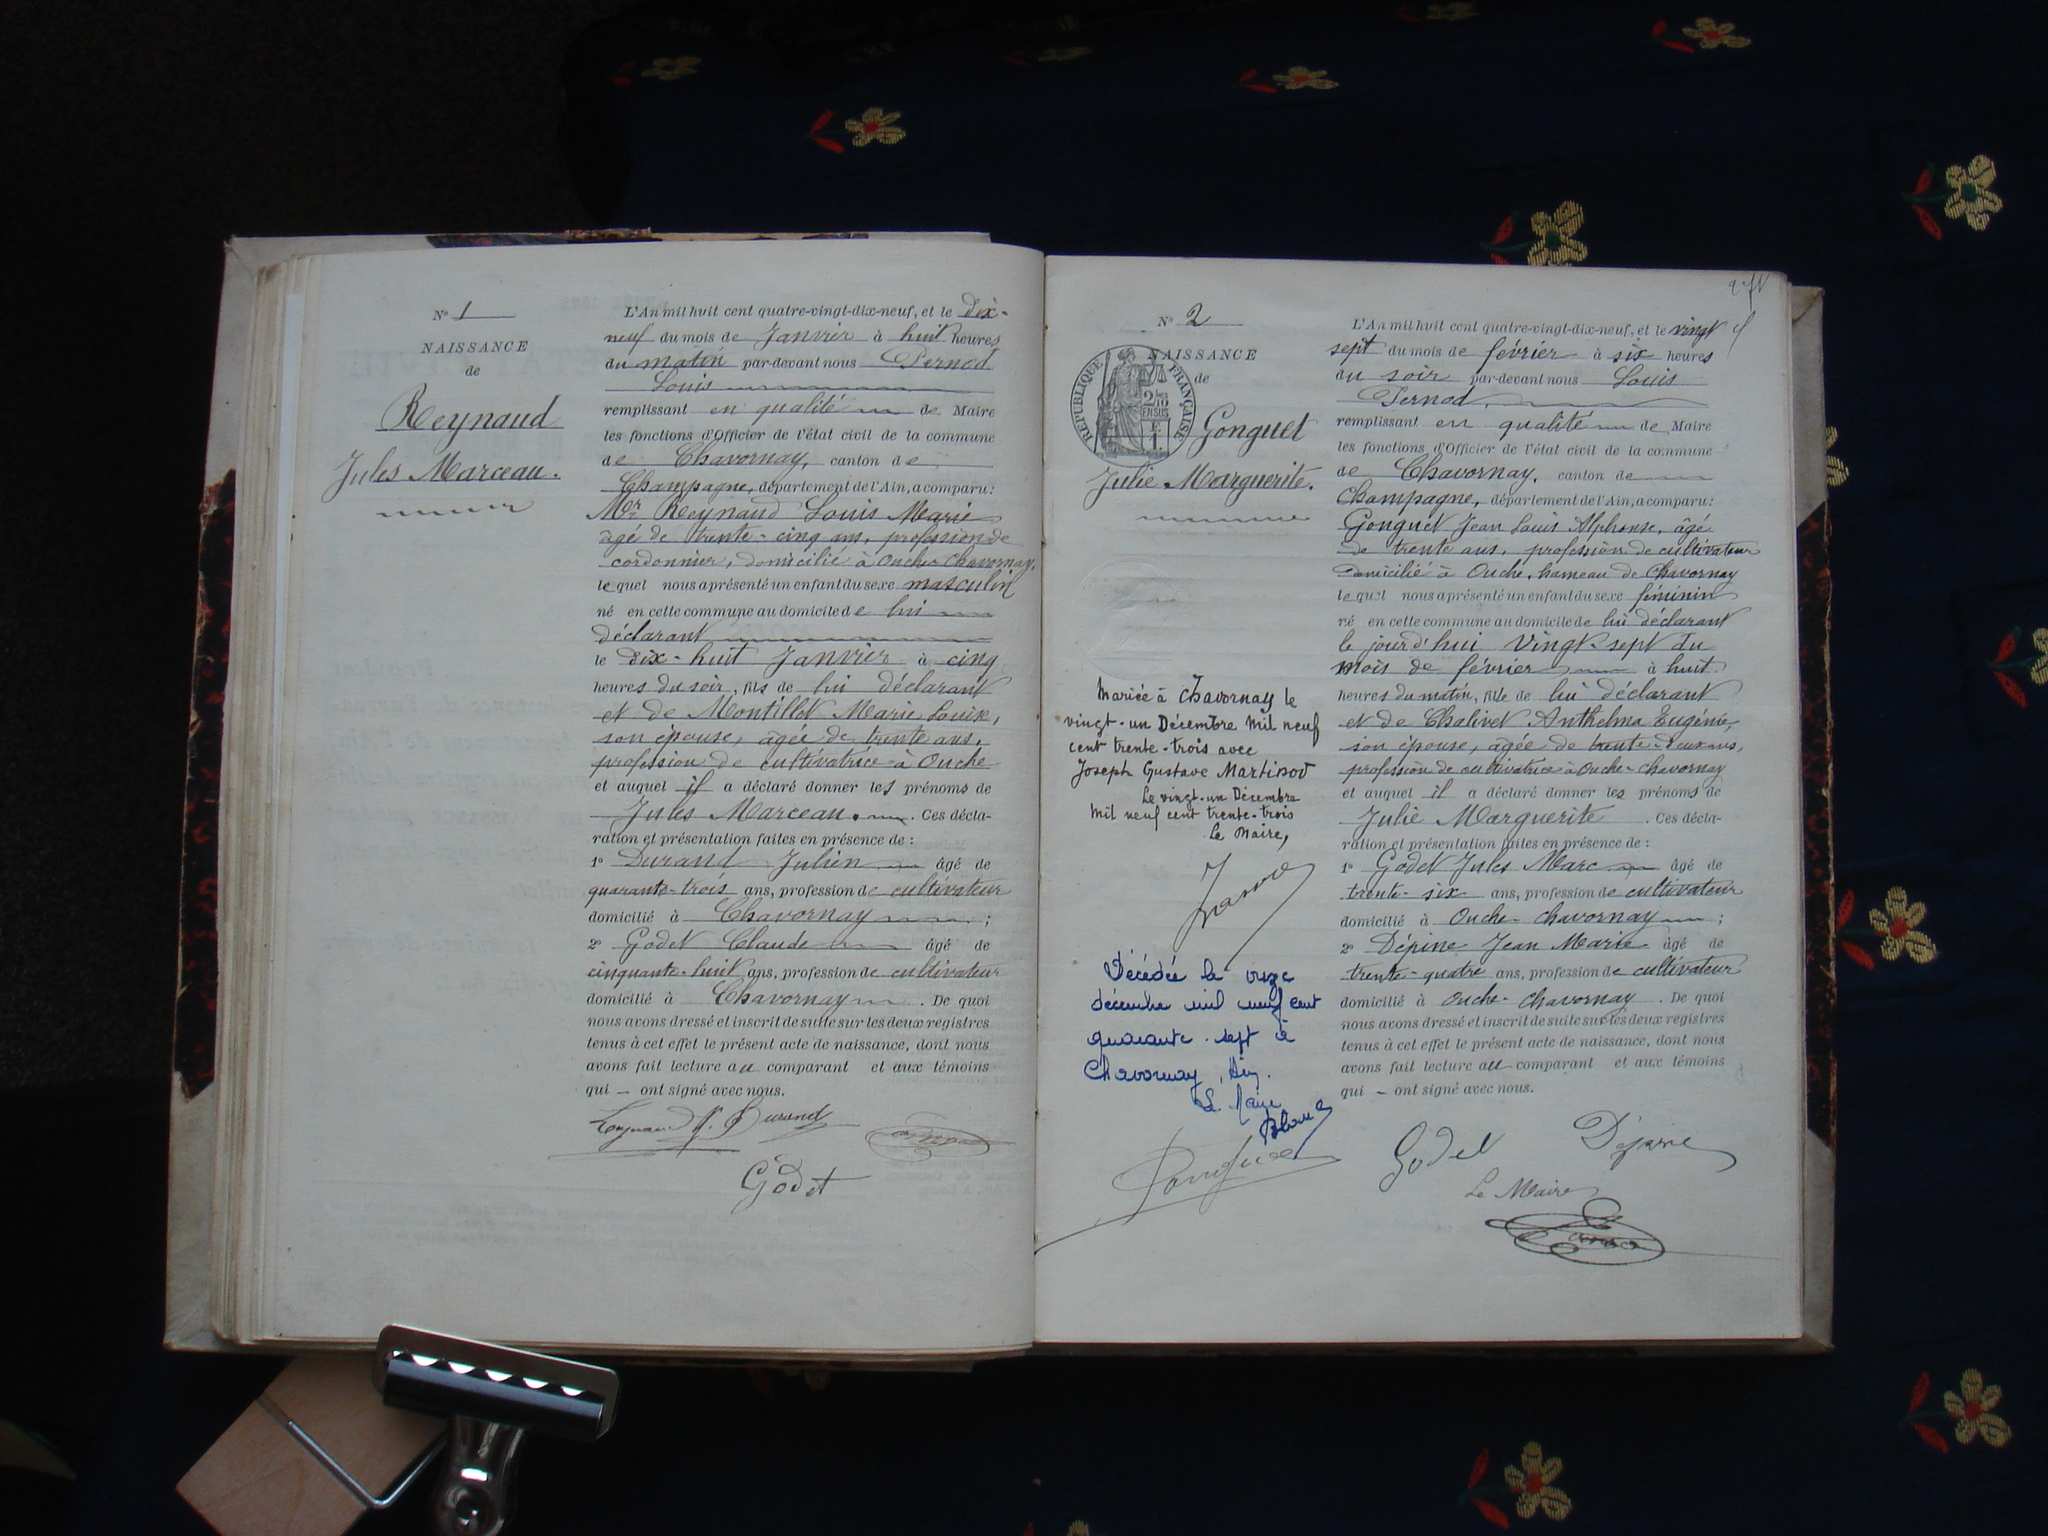 N° 1
NAISSANCE
de
Reynaud
Jules Marceau.
L'An mil huit cent quatre-vingt-dix-neuf, et le Dix-
neuf du mois de Janvier à huit heures
du matin par-devant nous Pernod
Louis
remplissant en qualité de Maire
les fonctions d'Officier de l'état civil de la commune
de Chavornay, canton de
Champagne, département de l'Ain, a comparu:
Mr Reynaud Louis Marie
âgé de trente-cinq ans, profession de
cordonnier, domicilié à Ouche Chavornay,
lequel nous a présenté un enfant du sexe masculin
né en cette commune au domicile de lui
déclarant
le dix-huit Janvier à cinq
heures du soir, fils de lui déclarant
et de Montillet Marie Louise,
son épouse, âgée de trente ans,
profession de cultivatrice à Ouche
et auquel il a déclaré donner les prénoms de
Jules Marceau. Ces décla-
ration et présentation faites en présence de :
1° Durand Julien âgé de
quarante-trois ans, profession de cultivateur
domicilié à Chavornay ;
2° Godet Claude âgé de
cinquante-huit ans, profession de cultivateur
domicilié à Chavornay . De quoi
nous avons dressé et inscrit de suite sur les deux registres
tenus à cet effet le présent acte de naissance, dont nous
avons fait lecture au comparant et aux témoins
qui – ont signé avec nous.
Reynaud J. Durand
Godet
N° 2
NAISSANCE
de
RÉPUBLIQUE FRANÇAISE
2/10 EN SUS
Gonguet
Julie Marguerite.
Mariée à Chavornay le
vingt-un Décembre mil neuf
cent trente-trois avec
Joseph Gustave Martinod
Le vingt-un Décembre
mil neuf cent trente-trois
Le Maire,
Décédée le onze
décembre mil neuf cent
quarante-sept à
Chavornay, Ain.
Le Maire
L'An mil huit cent quatre-vingt-dix-neuf, et le vingt
sept du mois de février à six heures
du soir par-devant nous Louis
Pernod,
remplissant en qualité de Maire
les fonctions d'Officier de l'état civil de la commune
de Chavornay, canton de
Champagne, département de l'Ain, a comparu:
Gonguet Jean Louis Alphonse, âgé
de trente ans, profession de cultivateur
domicilié à Ouche, hameau de Chavornay
lequel nous a présenté un enfant du sexe féminin
né en cette commune au domicile de lui déclarant
le jourd'hui vingt-sept du
mois de février à huit
heures du matin, fille de lui déclarant
et de Chalivet Anthelma Eugénie,
son épouse, âgée de trente-deux ans,
profession de cultivatrice à Ouche-Chavornay
et auquel il a déclaré donner les prénoms de
Julie Marguerite . Ces décla-
ration et présentation faites en présence de :
1° Godet Jules Marc âgé de
trente-six ans, profession de cultivateur
domicilié à Ouche-Chavornay ;
2° Dépine Jean Marie âgé de
trente-quatre ans, profession de cultivateur
domicilié à Ouche-Chavornay . De quoi
nous avons dressé et inscrit de suite sur les deux registres
tenus à cet effet le présent acte de naissance, dont nous
avons fait lecture au comparant et aux témoins
qui – ont signé avec nous.
Gonguet Godet Dépine
Le Maire